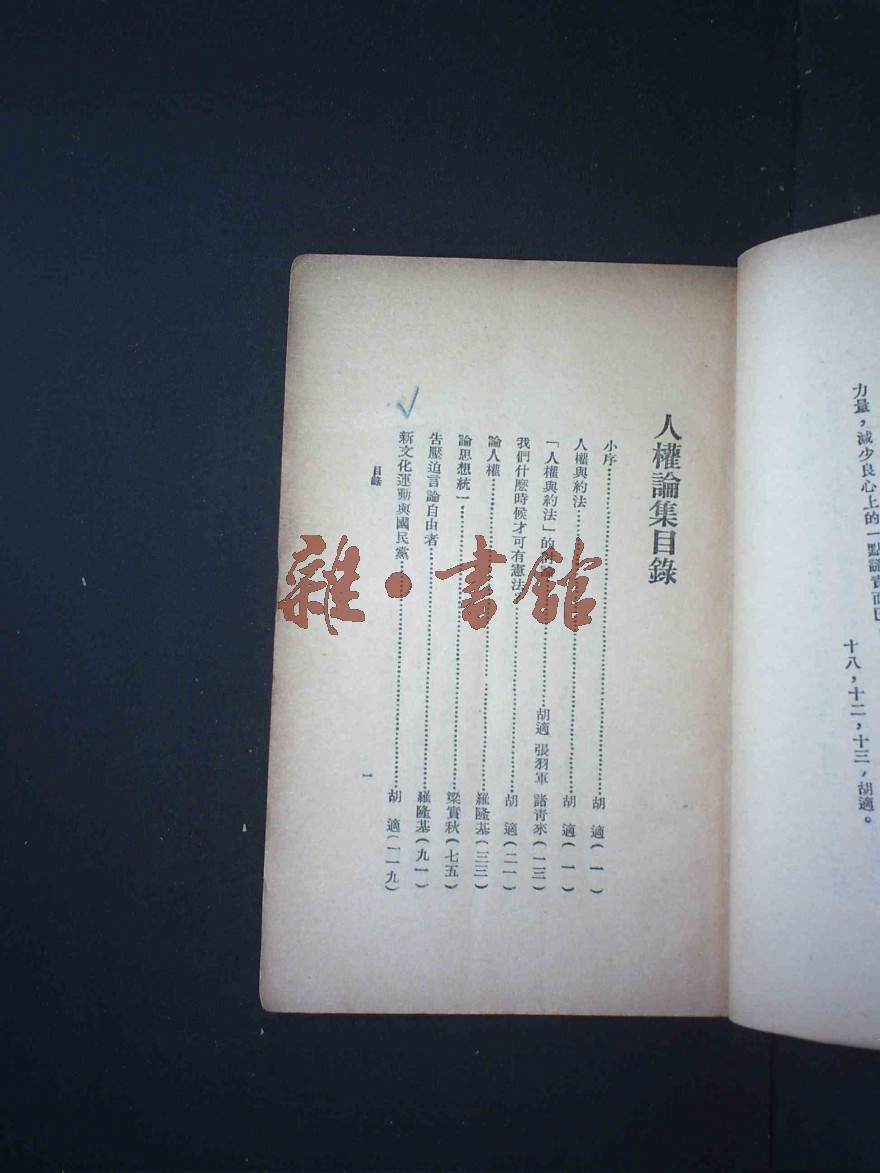 力量，減少良心上的一點譴責而已
十八，十二，十三，胡適。
人權論集目錄
小序……胡　適(一)
人權與約法……胡　適(一)
「人權與約法」的討論……胡適　張羽軍　諸青來(一三)
我們什麼時候才可有憲法……胡　適(二一)
論人權……羅隆基(三三)
論思想統一……梁實秋(七五)
告壓迫言論自由者……羅隆基(九一)
新文化運動與國民黨……胡　適(一一九)
目錄
一
雜·書館